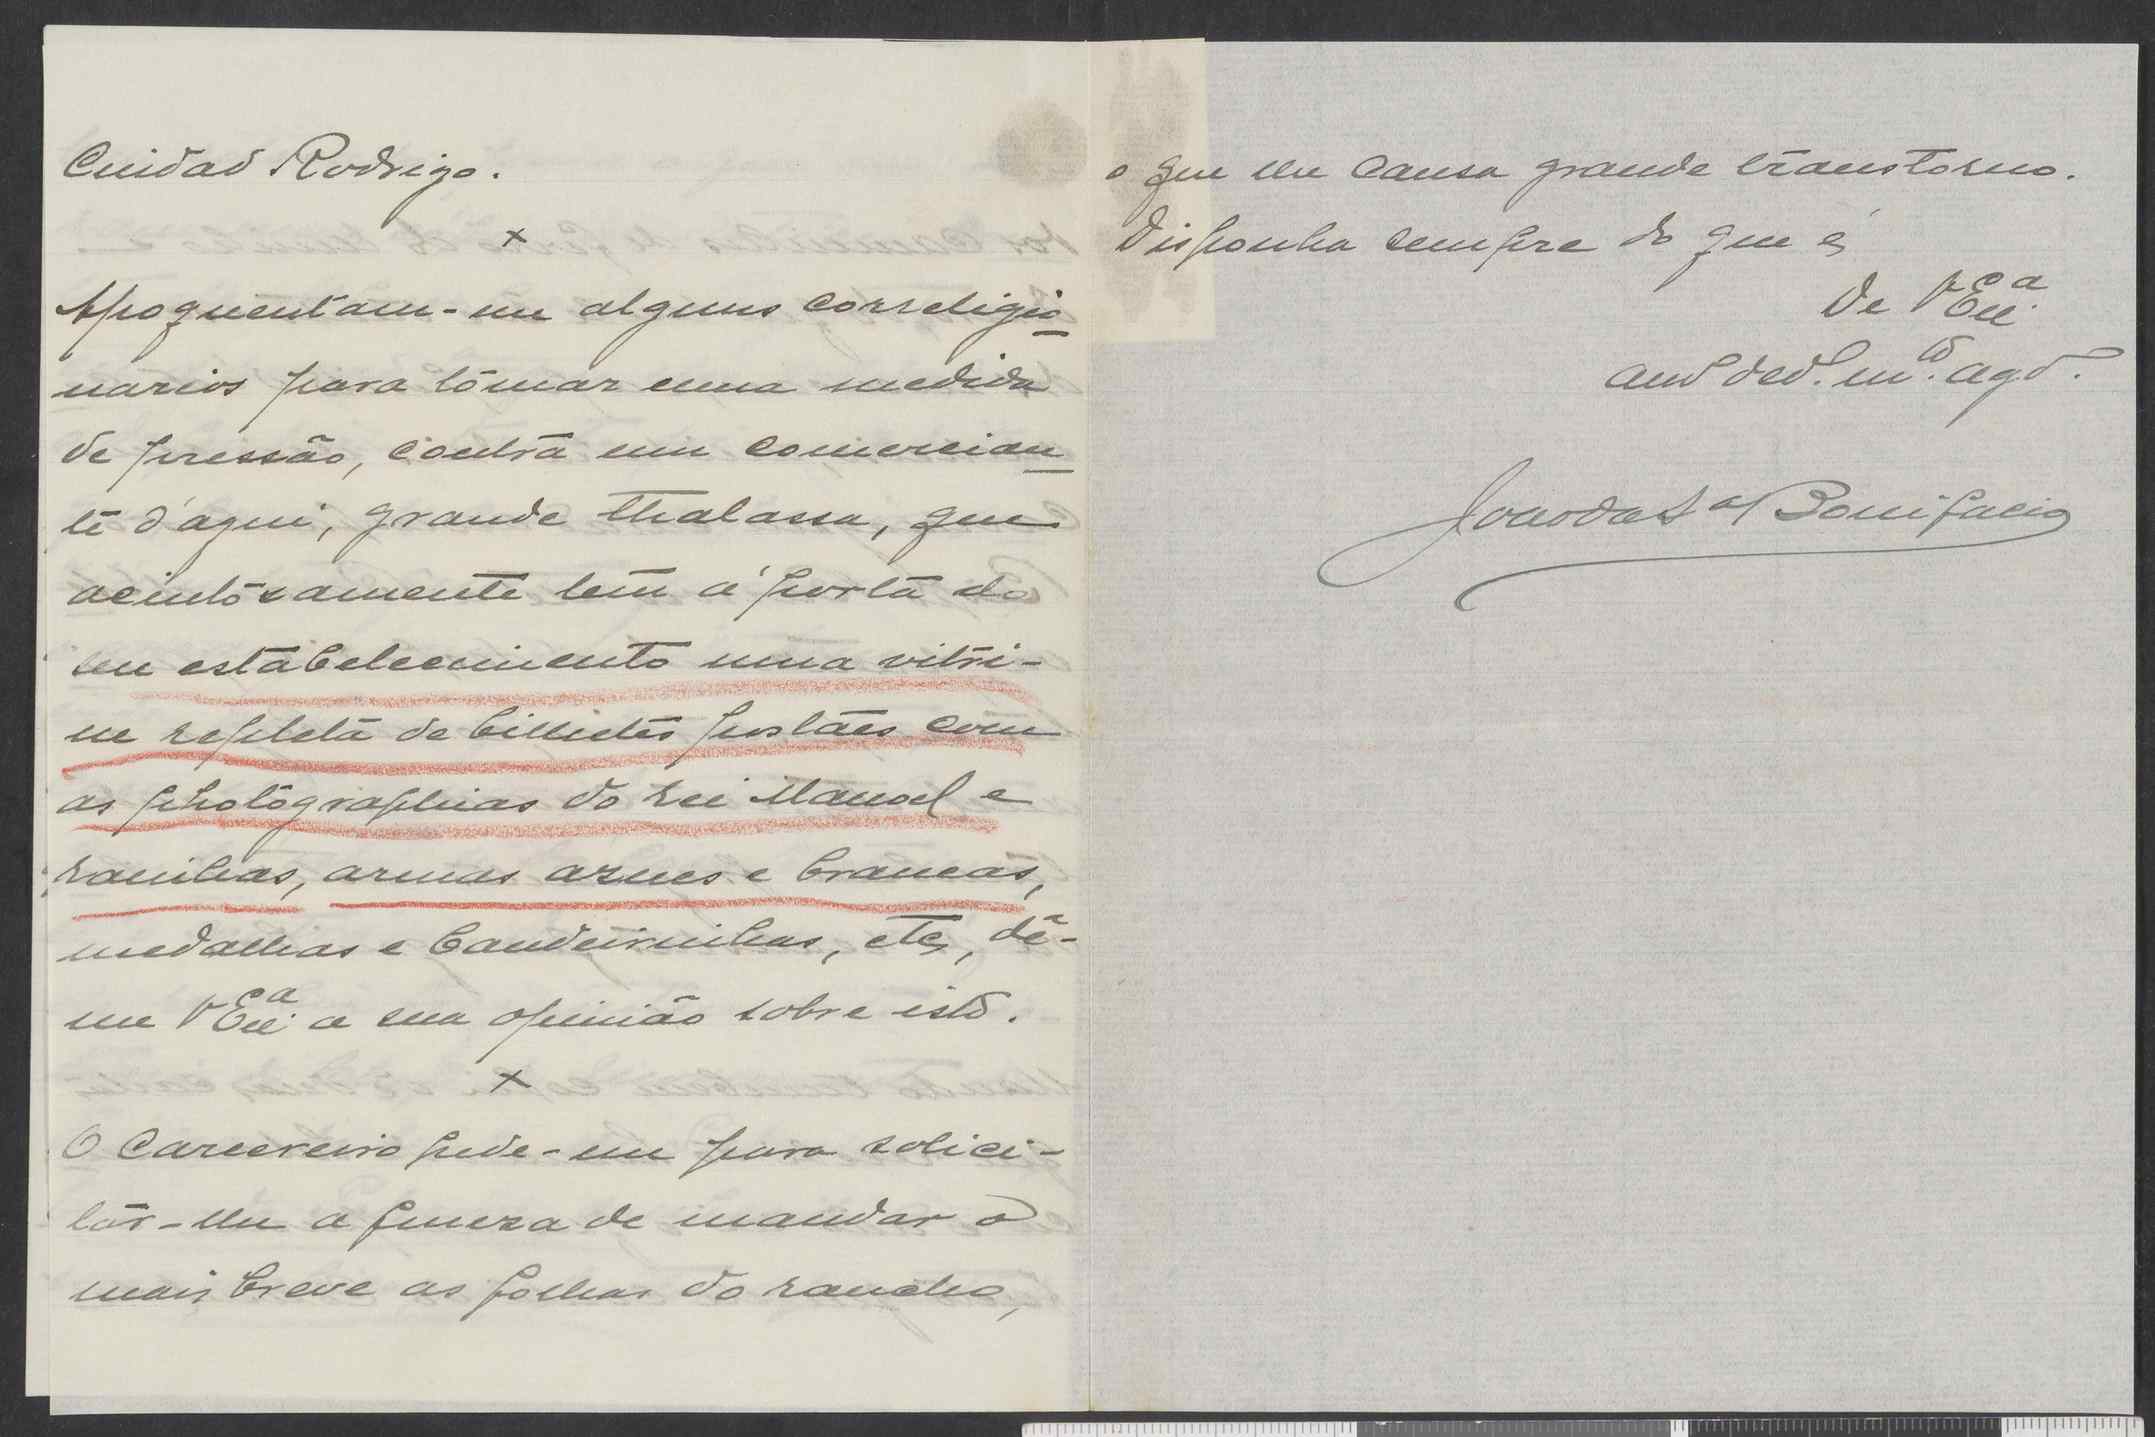 Cuidad Rodrigo.
×
Apoquentam-me alguns correligio
narios para tomar uma medida
de pressão, contra um comercian
te d'aqui, grande thalassa, que
acintosamente tem á porta do
seu estabelecimento uma vitri-
ne repleta de bilhetes postaes com
as photographias do rei Manoel e
rainhas, armas azues e brancas,
medalhas e bandeirinhas, etc, dê-
me VExª a sua opinião sobre isto.
×
O Carcereiro pede-me para solici-
tar-lhe a fineza de mandar o
mais breve as folhas do rancho,
o que lhe causa grande transtorno.
Disponha sempre do que é
De VExª
amº dedº. mtº. agdº.
João da Sª Bonifacio